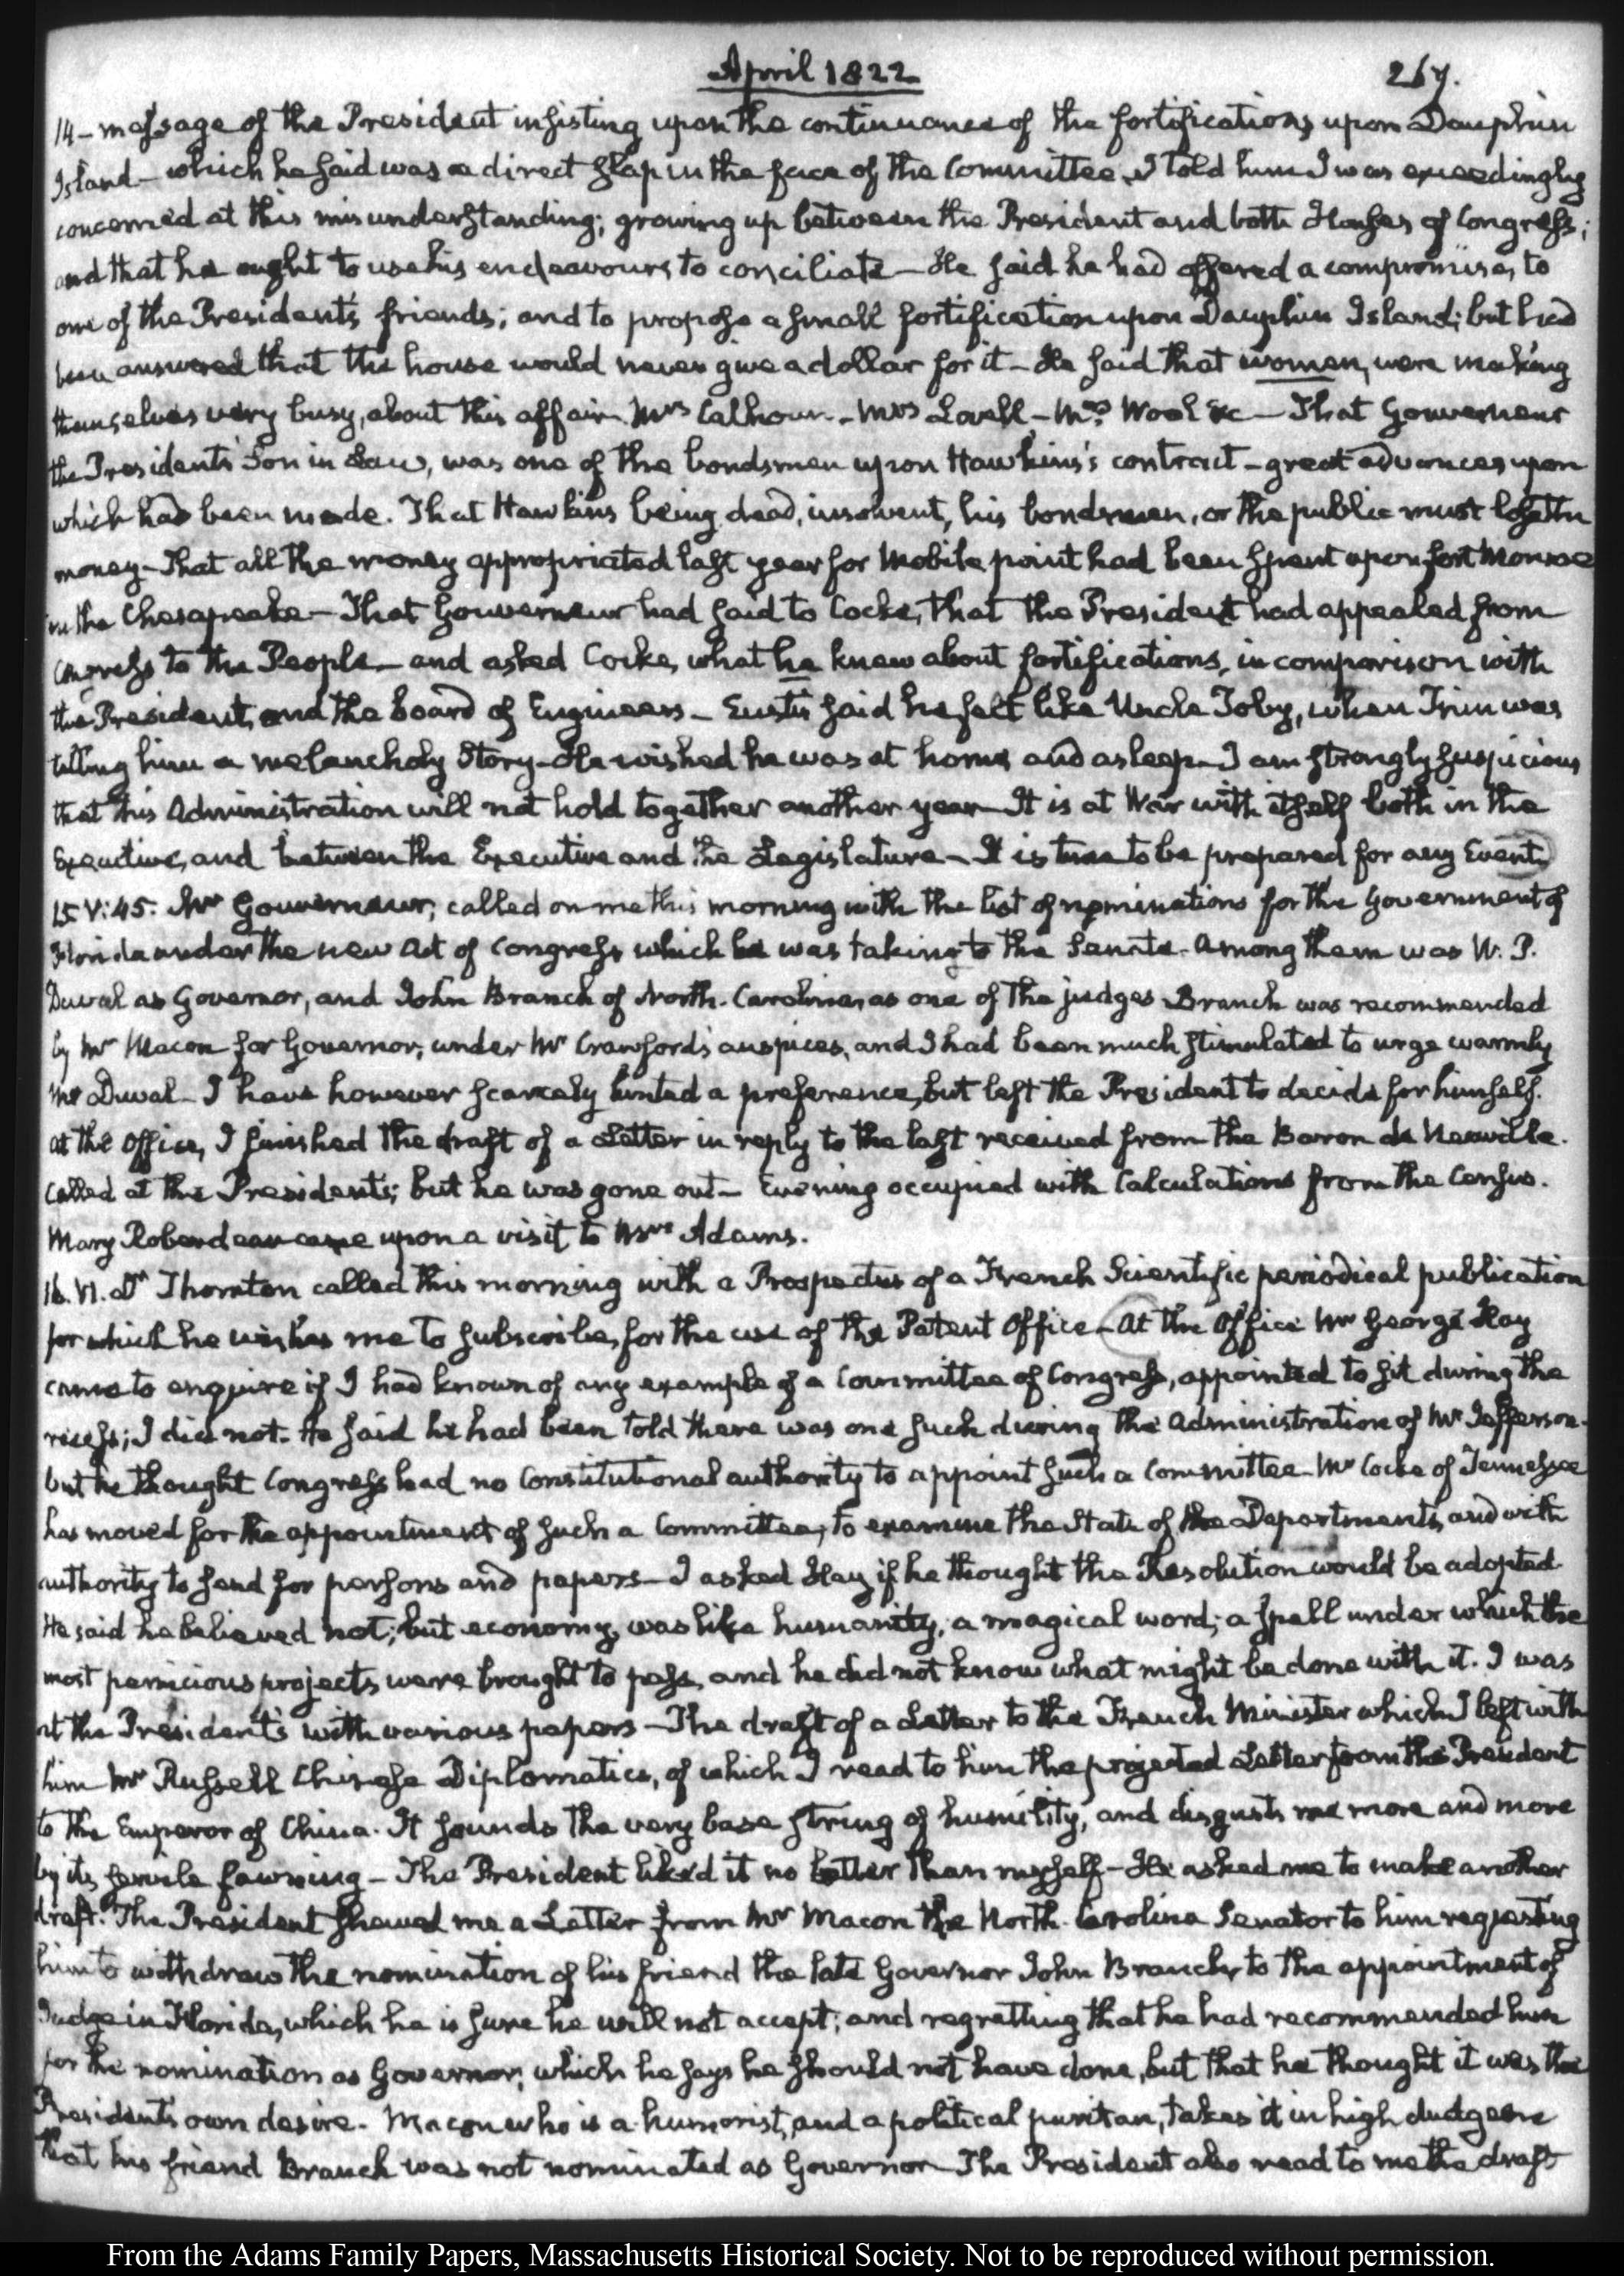 April 1822
267.
14 – message of the President insisting upon the continuance of the fortifications upon Dauphin
Island – which he said was a direct slap in the face of the Committee. I told him I was exceedingly
concerned at this misunderstanding; growing up between the President and both Houses of Congress;
and that he ought to use his endeavours to conciliate – He said he had offered a compromise, to
one of the President's friends; and to propose a small fortification upon Dauphin Island; but had
been answered that the house would never give a dollar for it – He said that women, were making
themselves very busy, about this affair. Mrs Calhoun – Mrs Lovell – Mrs Wool &c – That Gouverneur
the President's Son in Law, was one of the bondsmen upon Hawkins's contract – great advances upon
which had been made. That Hawkins being dead, insolvent, his bondsmen, or the public must lose the
money – That all the money appropriated last year for Mobile point had been spent upon fort Monroe
in the Chesapeake – That Gouverneur had said to Cocke, that the President had appealed from
Congress to the People – and asked Cocke, what he knew about fortifications, in comparison with
the President, and the board of Engineers – Eustis said he felt like Uncle Toby, when Trim was
telling him a melancholy Story – He wished he was at home, and asleep – I am strongly suspicious
that this Administration will not hold together another year – It is at War with itself both in the
Executive, and between the Executive and the Legislature – It is time to be prepared for any Event.
15. V:45. Mr Gouverneur, called on me this morning with the list of nominations for the Government of
Florida under the new Act of Congress which he was taking to the Senate. Among them was W. P.
Duval as Governor, and John Branch of North-Carolina, as one of the judges. Branch was recommended
by Mr Macon for Governor, under Mr Crawford's auspices, and I had been much stimulated to urge warmly
Mr Duval – I have however scarcely hinted a preference, but left the President to decide for himself.
At the Office, I finished the draft of a Letter in reply to the last received from the Baron de Neuville.
Called at the President's; but he was gone out – Evening occupied with Calculations from the Census.
Mary Roberdeau came upon a visit to Mrs Adams.
16. VI. Dr Thornton called this morning with a Prospectus of a French Scientific periodical publication
for which he wishes me to subscribe, for the use of the Patent Office – At the Office Mr George Hay
came to enquire if I had known of any example of a Committee of Congress, appointed to sit during the
recess; I did not. He said he had been told there was one such during the Administration of Mr Jefferson.
but he thought Congress had no Constitutional authority to appoint such a Committee – Mr Cocke of Tennessee
has moved for the appointment of such a Committee, to examine the State of the Departments, and with
authority to send for persons and papers – I asked Hay if he thought the Resolution would be adopted.
He said he believed not; but economy, was like humanity, a magical word; a spell under which the
most pernicious projects were brought to pass, and he did not know what might be done with it. I was
at the President's with various papers – The draft of a Letter to the French Minister which I left with
him Mr Russell Chinese Diplomatics, of which I read to him the projected Letter from the President
to the Emperor of China. It sounds the very base string of humility, and disgusts me more and more
by its servile fawning – The President liked it no better than myself – He asked me to make another
draft. The President shewed me a Letter from Mr Macon the North-Carolina Senator to him requesting
him to withdraw the nomination of his friend the late Governor John Branch, to the appointment of
Judge in Florida, which he is sure he will not accept; and regretting that he had recommended him
for the nomination as Governor, which he says he should not have done, but that he thought it was the
President's own desire. Macon who is a humorist, and a political puritan, takes it in high dudgeon
that his friend Branch was not nominated as Governor – The President also read to me the draft
From the Adams Family Papers, Massachusetts Historical Society. Not to be reproduced without permission.